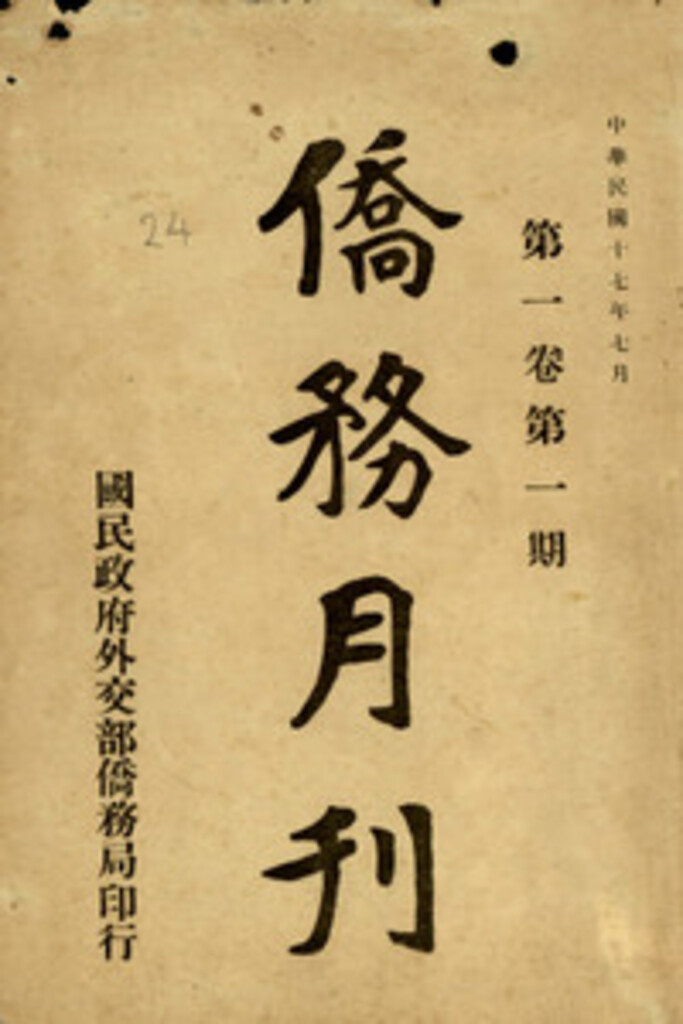 中華民國十七年七月
第一卷第一期
僑務月刊
24
國民政府外交部僑務局印行